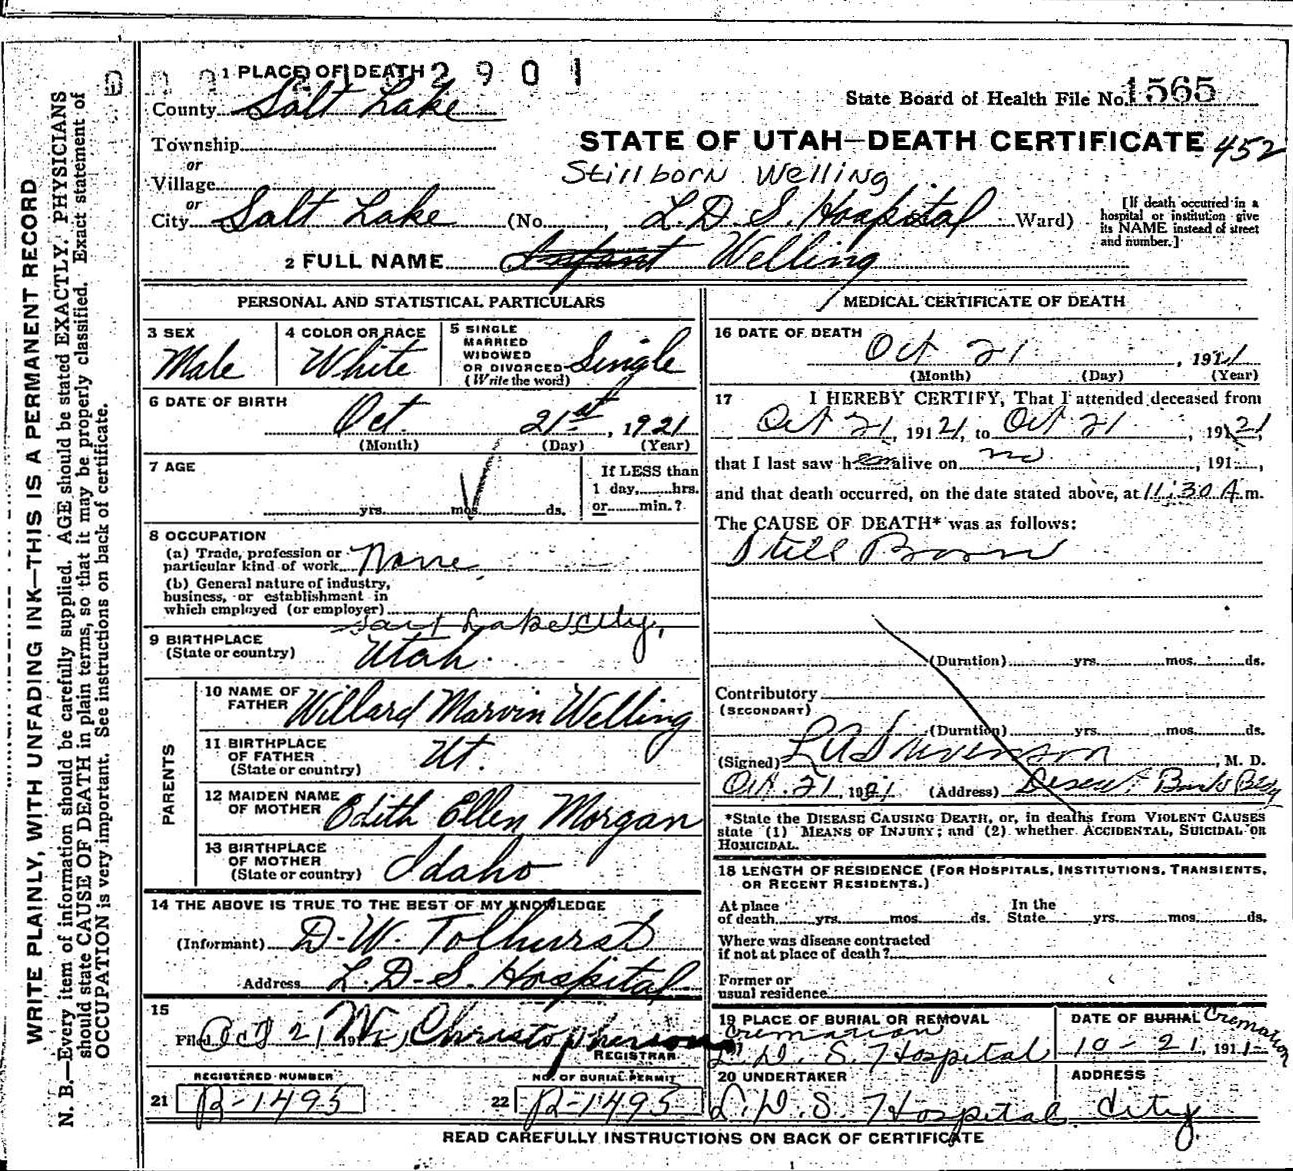 1 PLACE OF DEATH 2 9 0 1
County Salt Lake
State Board of Health File No. 1565
Township
STATE OF UTAH—DEATH CERTIFICATE 452
or
Village
Stillborn Welling
or
City Salt Lake (No. L.D.S. Hospital Ward)
[If death occurred in a hospital or institution give its NAME instead of street and number.]
2 FULL NAME Infant Welling
PERSONAL AND STATISTICAL PARTICULARS
3 SEX
Male
4 COLOR OR RACE
White
5 SINGLE
MARRIED
WIDOWED
OR DIVORCED
(Write the word)
Single
6 DATE OF BIRTH
Oct. 21st, 1921
(Month) (Day) (Year)
7 AGE
yrs. mos. ds.
If LESS than
1 day, hrs.
or min.?
8 OCCUPATION
(a) Trade, profession or
particular kind of work None
(b) General nature of industry,
business, or establishment in
which employed (or employer)
Salt Lake City,
9 BIRTHPLACE
(State or country) Utah.
PARENTS
10 NAME OF
FATHER Willard Marvin Welling
11 BIRTHPLACE
OF FATHER
(State or country) Ut.
12 MAIDEN NAME
OF MOTHER Edith Ellen Morgan
13 BIRTHPLACE
OF MOTHER
(State or country) Idaho
14 THE ABOVE IS TRUE TO THE BEST OF MY KNOWLEDGE
(Informant) D-W. Tolhurst
Address L-D-S. Hospital
15
Filed Oct 21, 191 Christopherson
REGISTRAR
REGISTERED NUMBER
21 B-1495
NO. OF BURIAL PERMIT
22 B-1495
MEDICAL CERTIFICATE OF DEATH
16 DATE OF DEATH
Oct 21, 1921
(Month) (Day) (Year)
17 I HEREBY CERTIFY, That I attended deceased from
Oct 21, 191 21, to Oct 21, 191 21,
that I last saw h em alive on no, 191 ,
and that death occurred, on the date stated above, at 11:30 A.m.
The CAUSE OF DEATH* was as follows:
Still Born
(Duration) yrs. mos. ds.
Contributory
(SECONDARY)
(Duration) yrs. mos. ds.
(Signed) L A Stevenson, M. D.
Oct. 21, 1921 (Address) Deseret Bank Bldg
*State the DISEASE CAUSING DEATH, or, in deaths from VIOLENT CAUSES
state (1) MEANS OF INJURY; and (2) whether ACCIDENTAL, SUICIDAL OR
HOMICIDAL.
18 LENGTH OF RESIDENCE (FOR HOSPITALS, INSTITUTIONS, TRANSIENTS,
OR RECENT RESIDENTS.)
At place
of death yrs. mos. ds.
In the
State yrs. mos. ds.
Where was disease contracted
if not at place of death?
Former or
usual residence
19 PLACE OF BURIAL OR REMOVAL
Cremation
L. D. S. Hospital
DATE OF BURIAL Cremation
10-21, 191
20 UNDERTAKER
L. D. S. Hospital
ADDRESS
City
READ CAREFULLY INSTRUCTIONS ON BACK OF CERTIFICATE
WRITE PLAINLY, WITH UNFADING INK—THIS IS A PERMANENT RECORD
N. B.—Every item of information should be carefully supplied. AGE should be stated EXACTLY. PHYSICIANS
should state CAUSE OF DEATH in plain terms, so that it may be properly classified. Exact statement of
OCCUPATION is very important. See instructions on back of certificate.